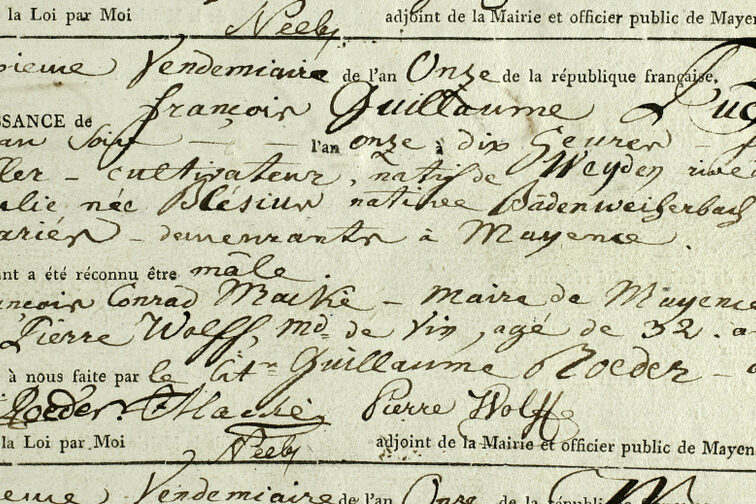 la Loi par Moi Néeb adjoint de la Mairie et officier public de Mayen
Vendemiaire de l'an Onze de la république française.
SSANCE de françois Guillaume
an soir l'an onze à dix heures
cultivateur, natif de Weyden
née Blésius native Badenweilerbach
ariés - demeurants à Mayence.
nt a été réconnu être mâle.
ancois Conrad Macké - maire de Mayence
Pierre Wolff, Md. de Vin, agé de 32. a
à nous faite par le Citn Guillaume Roeder
Roeder. F Macké Pierre Wolff
la Loi par Moi Néeb adjoint de la Mairie et officier public de Mayen
Vendemiaire de l'an Onze de la républi